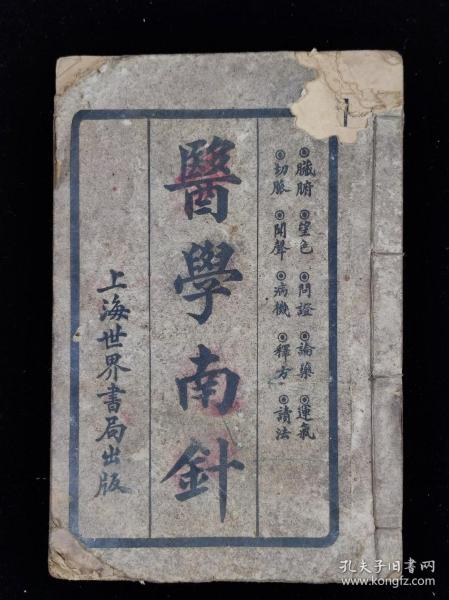 ◉臟腑◉望色◉問證◉論藥◉運氣
◉切脈◉聞聲◉病機◉釋方◉讀法
醫學南針
上海世界書局出版
孔夫子旧书网
www.kongfz.com